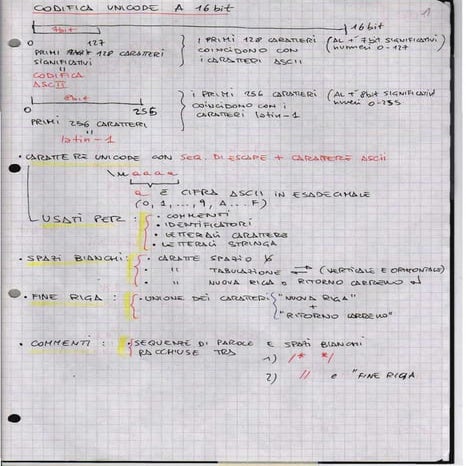 CODIFICA UNICODE A 16 bit
1
7bit
16 bit
0 127
PRIMI 128 CARATTERI
SIGNIFICATIVI
"
CODIFICA
ASCII
I PRIMI 128 CARATTERI
COINCIDONO CON
I CARATTERI ASCII
(AL + 7bit SIGNIFICATIVI
numeri 0-127
8bit
0 256
PRIMI 256 CARATTERI
"
latin-1
I PRIMI 256 CARATTERI
COINCIDONO CON I
CARATTERI latin-1
(AL + 8bit SIGNIFICATIVI
numeri 0-255
• CARATTERE UNICODE CON SEQ. DI ESCAPE + CARATTERE ASCII
\u a a a a
a È CIFRA ASCII IN ESADECIMALE
(0, 1, ..., 9, A ... F)
USATI PER:
• COMMENTI
• IDENTIFICATORI
• LETTERALI CARATTERE
• LETTERALI STRINGA
• SPAZI BIANCHI:
• CARATTE SPAZIO
• " TABULAZIONE (VERTICALE E ORIZZONTALE)
• " NUOVA RIGA O RITORNO CARRELLO
• FINE RIGA :
• UNIONE DEI CARATTERI "NUOVA RIGA"
+
"RITORNO CARRELLO"
• COMMENTI :
• SEQUENZE DI PAROLE E SPAZI BIANCHI
RACCHIUSE TRA
1) /* */
2) // e "FINE RIGA